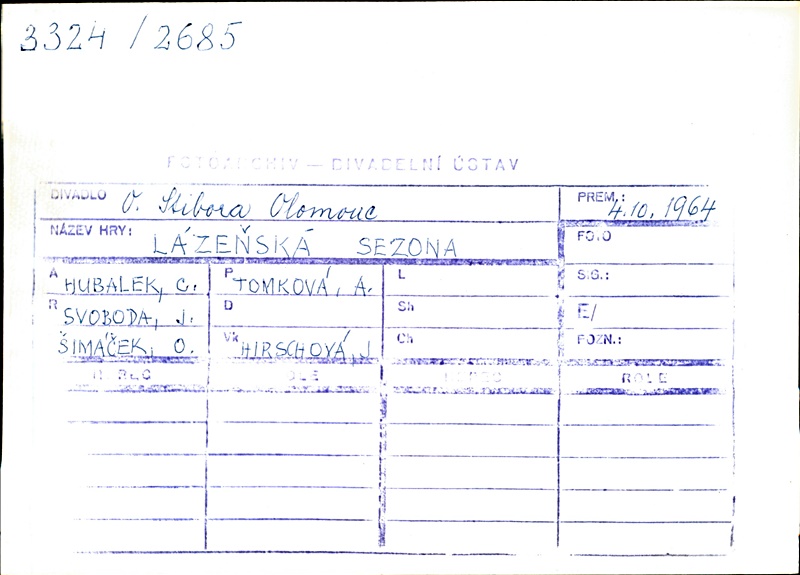 3324 / 2685
FOTOARCHIV — DIVADELNÍ ÚSTAV
DIVADLO O. Stibora Olomouc PREM.: 4.10.1964
NÁZEV HRY: LÁZEŇSKÁ SEZONA FOTO
A HUBALEK, C. P TOMKOVÁ, A. L SIG.:
R SVOBODA, J. D Sh E/
ŠIMÁČEK, O. Vk HIRSCHOVÁ, J. Ch POZN.:
HEREC ROLE HEREC ROLE